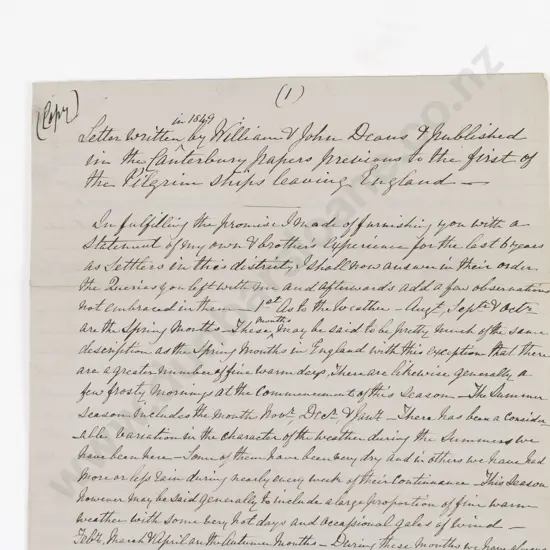 (Copy)
(1)
in 1849
Letter written by William & John Deans & published
in the Canterbury papers previous to the first of
the Pilgrim Ships leaving England —
In fulfilling the promise I made of furnishing you with a
Statement of my own & brothers Experience for the last 6 years
as Settlers in this district, I shall now answer in their order
the Queries you left with me and afterwards add a few observations
not embraced in them 1st As to the Weather – Augt, Septr & Octr
are the Spring Months – These months may be said to be pretty much of the same
description as the Spring Months in England with this exception that there
are a greater number of fine warm days, there are likewise generally a
few frosty mornings at the Commencement of this Season – The Summer
Season includes the Month Novr, Decr & Jany – There has been a consider-
able variation in the character of the weather during the Summers we
have been here – Some of them have been very dry and in others we have had
more or less rain during nearly every week of their Continuance – This Season
however may be said generally to include a large proportion of fine warm
weather with some very hot days and occasional gales of wind –
Feby, March & April are the Autumn Months – During these Months we